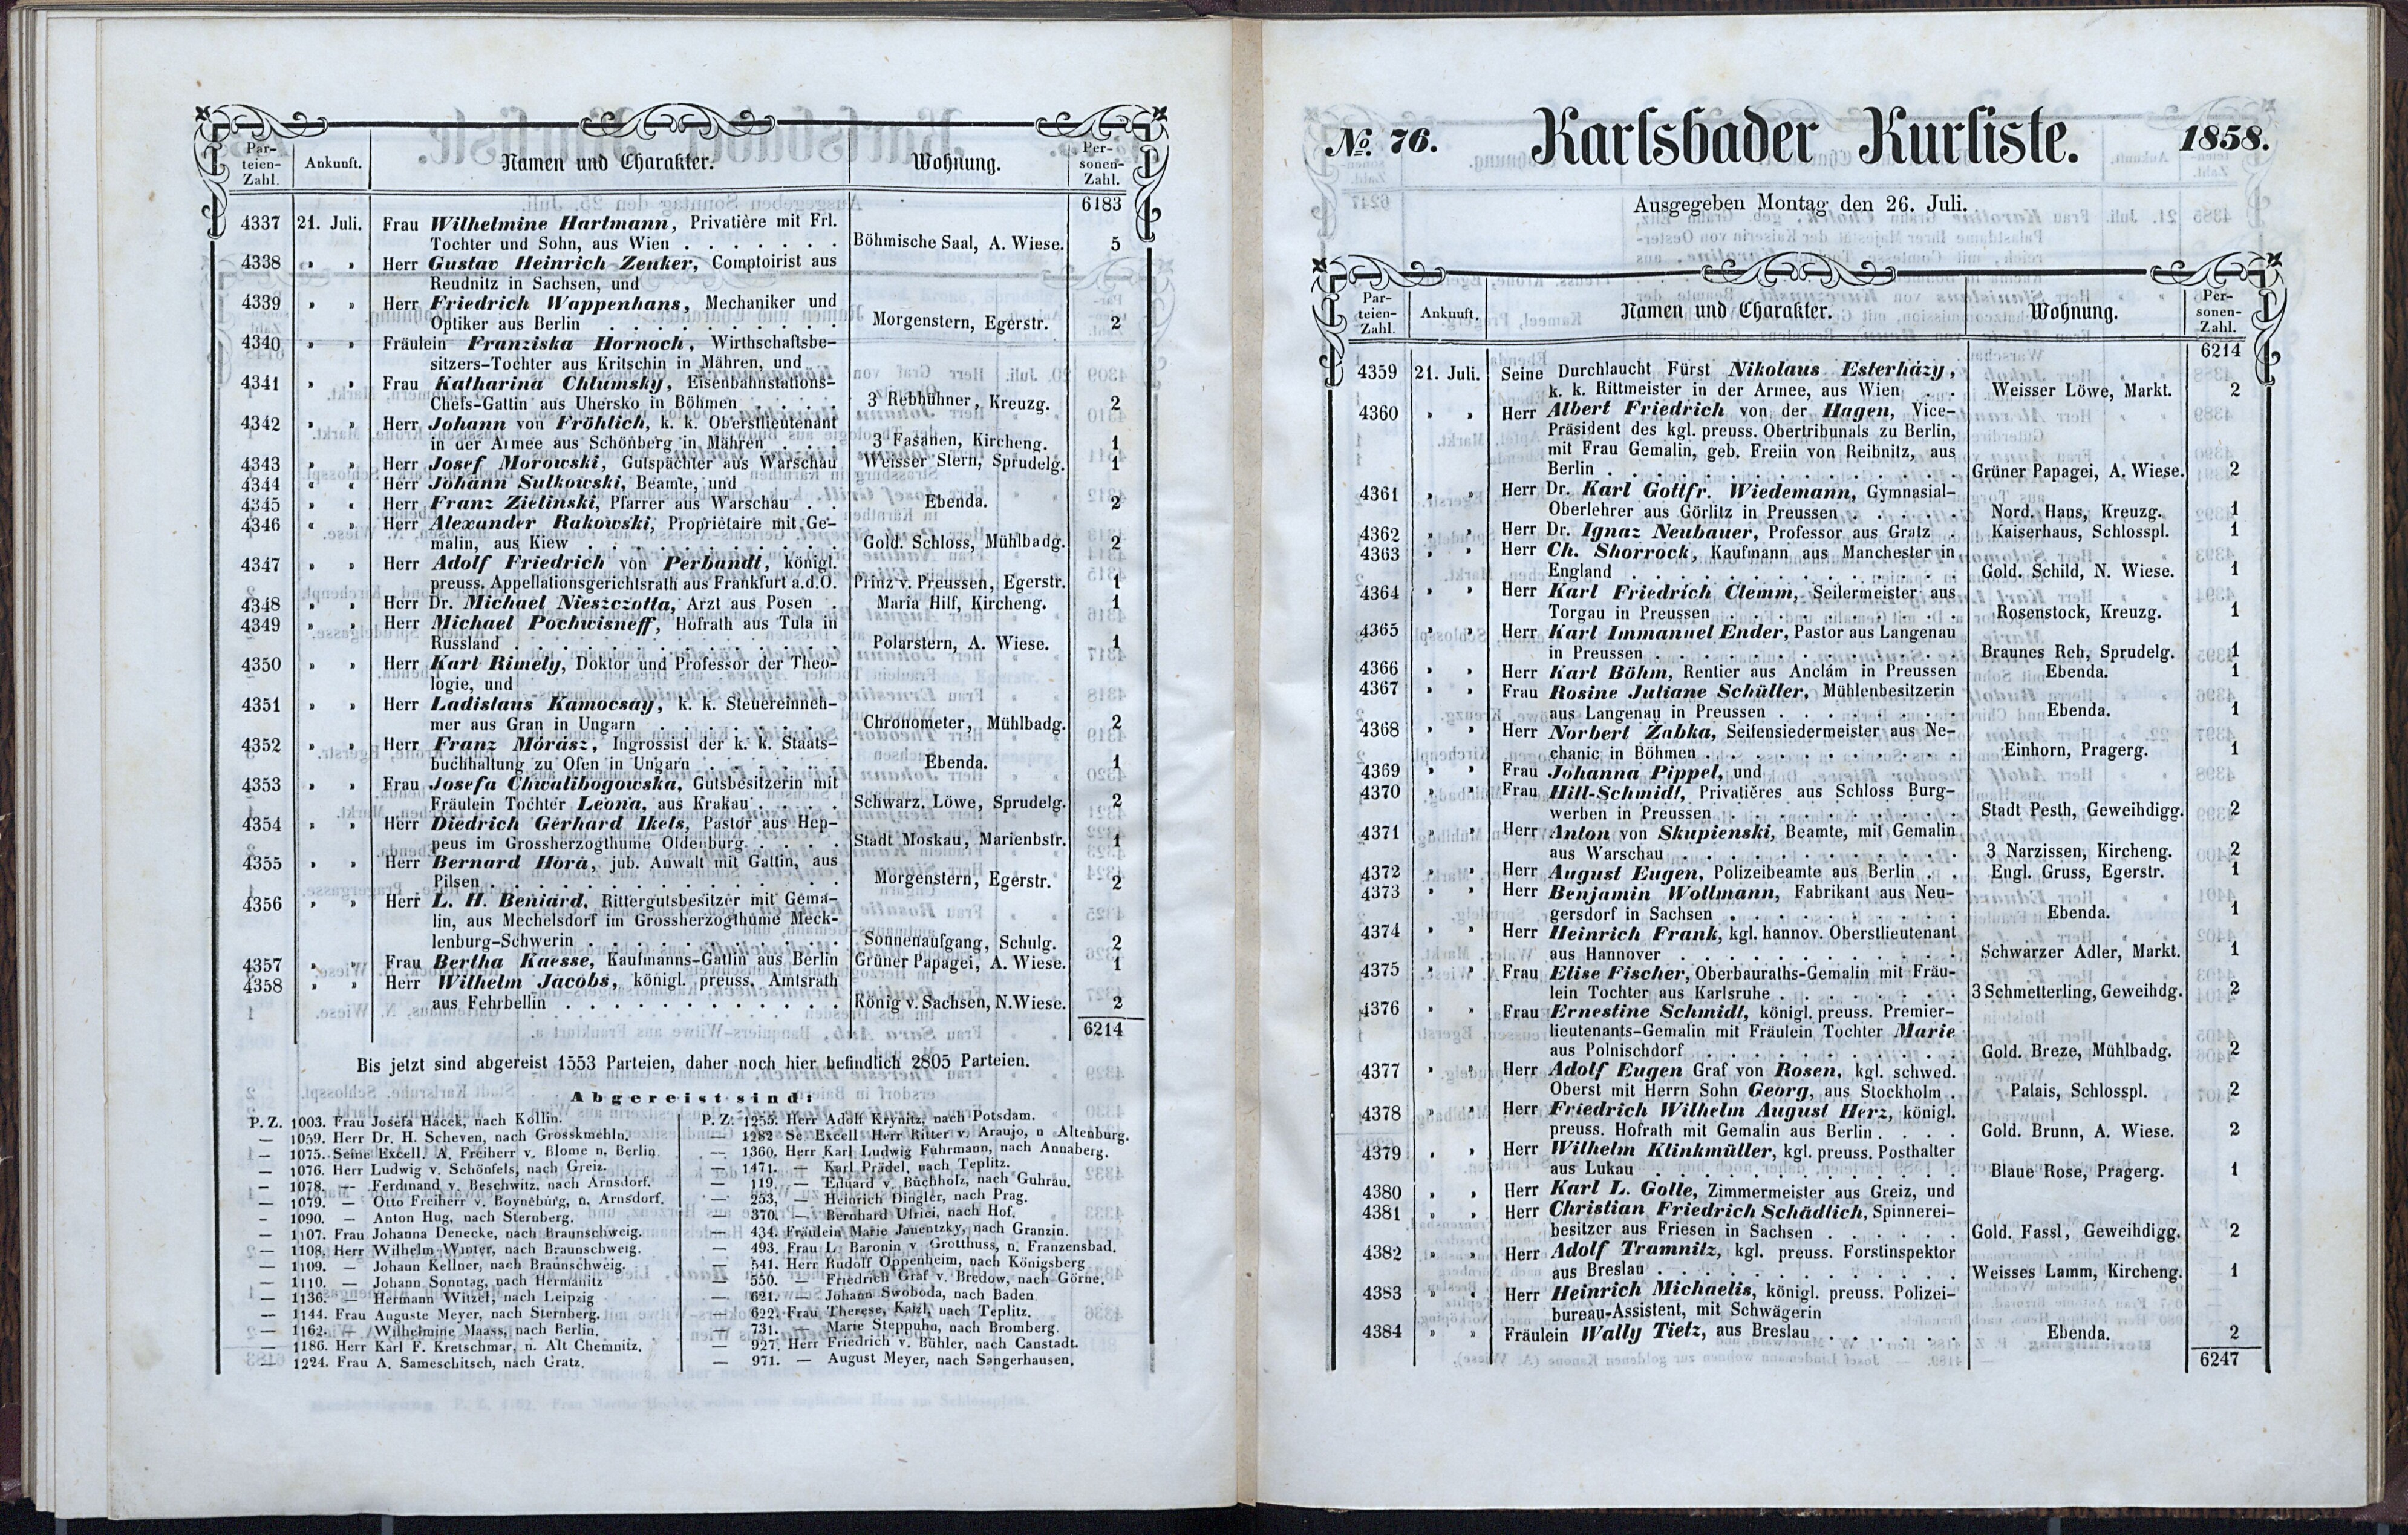 Par-
teien-
Zahl.
Ankunft.
Namen und Charakter.
Wohnung.
Per-
sonen-
Zahl.
6183
4337 21. Juli. Frau Wilhelmine Hartmann, Privatière mit Frl.
Tochter und Sohn, aus Wien . . . . . . . Böhmische Saal, A. Wiese. 5
4338 » » Herr Gustav Heinrich Zenker, Comptoirist aus
Reudnitz in Sachsen, und
4339 » » Herr Friedrich Wappenhans, Mechaniker und
Optiker aus Berlin . . . . . . . . . . Morgenstern, Egerstr. 2
4340 » » Fräulein Franziska Hornoch, Wirthschaftsbe-
sitzers-Tochter aus Kritschin in Mähren, und
4341 » » Frau Katharina Chlumsky, Eisenbahnstations-
Chefs-Gattin aus Uhersko in Böhmen . . . . 3 Rebhühner, Kreuzg. 2
4342 » » Herr Johann von Fröhlich, k. k. Oberstlieutenant
in der Armee aus Schönberg in Mähren . . . 3 Fasanen, Kircheng. 1
4343 » » Herr Josef Morowski, Gutspächter aus Warschau Weisser Stern, Sprudelg. 1
4344 « « Herr Johann Sulkowski, Beamte, und
4345 » « Herr Franz Zielinski, Pfarrer aus Warschau . . Ebenda. 2
4346 « » Herr Alexander Rakowski, Propriétaire mit Ge-
malin, aus Kiew . . . . . . . . . . . Gold. Schloss, Mühlbadg. 2
4347 » » Herr Adolf Friedrich von Perbandt, königl.
preuss. Appellationsgerichtsrath aus Frankfurt a.d.O. Prinz v. Preussen, Egerstr. 1
4348 » » Herr Dr. Michael Nieszczotta, Arzt aus Posen . Maria Hilf, Kircheng. 1
4349 » » Herr Michael Pochwisneff, Hofrath aus Tula in
Russland . . . . . . . . . . . . . . Polarstern, A. Wiese. 1
4350 » » Herr Karl Rimely, Doktor und Professor der Theo-
logie, und
4351 » » Herr Ladislaus Kamocsay, k. k. Steuereinneh-
mer aus Gran in Ungarn . . . . . . . . Chronometer, Mühlbadg. 2
4352 » » Herr Franz Mórász, Ingrossist der k. k. Staats-
buchhaltung zu Ofen in Ungarn . . . . . . Ebenda. 1
4353 » » Frau Josefa Chwalibogowska, Gutsbesitzerin mit
Fräulein Tochter Leona, aus Krakau . . . . Schwarz. Löwe, Sprudelg. 2
4354 » » Herr Diedrich Gerhard Ikels, Pastor aus Hep-
peus im Grossherzogthume Oldenburg . . . . Stadt Moskau, Marienbstr. 1
4355 » » Herr Bernard Hora, jub. Anwalt mit Gattin, aus
Pilsen . . . . . . . . . . . . . . . Morgenstern, Egerstr. 2
4356 » » Herr L. H. Beniard, Rittergutsbesitzer mit Gema-
lin, aus Mechelsdorf im Grossherzogthume Meck-
lenburg-Schwerin . . . . . . . . . . . Sonnenaufgang, Schulg. 2
4357 » » Frau Bertha Kaesse, Kaufmanns-Gattin aus Berlin Grüner Papagei, A. Wiese. 1
4358 » » Herr Wilhelm Jacobs, königl. preuss. Amtsrath
aus Fehrbellin . . . . . . . . . . . . König v. Sachsen, N. Wiese. 2
6214
Bis jetzt sind abgereist 1553 Parteien, daher noch hier befindlich 2805 Parteien.
Abgereist sind:
P. Z. 1003. Frau Josefa Hácek, nach Kollin.
— 1059. Herr Dr. H. Scheven, nach Grosskmehln.
— 1075. Seine Excell. A. Freiherr v. Blome n. Berlin
— 1076. Herr Ludwig v. Schönfels, nach Greiz.
— 1078. — Ferdinand v. Beschwitz, nach Arnsdorf.
— 1079. — Otto Freiherr v. Boyneburg, n. Arnsdorf.
— 1090. — Anton Hug, nach Sternberg.
— 1107. Frau Johanna Denecke, nach Braunschweig.
— 1108. Herr Wilhelm Winter, nach Braunschweig.
— 1109. — Johann Kellner, nach Braunschweig.
— 1110. — Johann Sonntag, nach Hermanitz
— 1136. — Hermann Witzel, nach Leipzig
— 1144. Frau Auguste Meyer, nach Sternberg.
— 1162. — Wilhelmine Maass, nach Berlin.
— 1186. Herr Karl F. Kretschmar, n. Alt Chemnitz.
— 1224. Frau A. Sameschitsch, nach Gratz.
P. Z. 1255. Herr Adolf Krynitz, nach Potsdam.
— 1282 Se. Excell Herr Ritter v. Araujo, n Altenburg.
— 1360. Herr Karl Ludwig Fuhrmann, nach Annaberg.
— 1471. — Karl Prädel, nach Teplitz.
— 119. — Eduard v. Buchholz, nach Guhrau.
— 253. — Heinrich Dingler, nach Prag.
— 370. — Bernhard Ulrici, nach Hof.
— 434. Fräulein Marie Janentzky, nach Granzin.
— 493. Frau L. Baronin v Grotthuss, n. Franzensbad.
— 541. Herr Rudolf Oppenheim, nach Königsberg
— 550. — Friedrich Graf v. Bredow, nach Görne.
— 621. — Johann Swoboda, nach Baden
— 622. Frau Therese, Kaizl, nach Teplitz.
— 731. — Marie Steppuhn, nach Bromberg.
— 927. Herr Friedrich v. Bühler, nach Canstadt.
— 971. — August Meyer, nach Sangerhausen.
No. 76. Karlsbader Kurliste. 1858.
Ausgegeben Montag den 26. Juli.
Par-
teien-
Zahl.
Ankunft.
Namen und Charakter.
Wohnung.
Per-
sonen-
Zahl.
6214
4359 21. Juli. Seine Durchlaucht Fürst Nikolaus Esterházy,
k. k. Rittmeister in der Armee, aus Wien . . Weisser Löwe, Markt. 2
4360 » » Herr Albert Friedrich von der Hagen, Vice-
Präsident des kgl. preuss. Obertribunals zu Berlin,
mit Frau Gemalin, geb. Freiin von Reibnitz, aus
Berlin . . . . . . . . . . . . . . . Grüner Papagei, A. Wiese. 2
4361 » » Herr Dr. Karl Gottfr. Wiedemann, Gymnasial-
Oberlehrer aus Görlitz in Preussen . . . . . Nord. Haus, Kreuzg. 1
4362 » » Herr Dr. Ignaz Neubauer, Professor aus Gratz . Kaiserhaus, Schlosspl. 1
4363 » » Herr Ch. Shorrock, Kaufmann aus Manchester in
England . . . . . . . . . . . . . . Gold. Schild, N. Wiese. 1
4364 » » Herr Karl Friedrich Clemm, Seilermeister aus
Torgau in Preussen . . . . . . . . . . Rosenstock, Kreuzg. 1
4365 » » Herr Karl Immanuel Ender, Pastor aus Langenau
in Preussen . . . . . . . . . . . . . Braunes Reh, Sprudelg. 1
4366 » » Herr Karl Böhm, Rentier aus Anclám in Preussen Ebenda. 1
4367 » » Frau Rosine Juliane Schüller, Mühlenbesitzerin
aus Langenau in Preussen . . . . . . . . Ebenda. 1
4368 » » Herr Norbert Žabka, Seifensiedermeister aus Ne-
chanic in Böhmen . . . . . . . . . . . Einhorn, Pragerg. 1
4369 » » Frau Johanna Pippel, und
4370 » » Frau Hill-Schmidt, Privatières aus Schloss Burg-
werben in Preussen . . . . . . . . . . Stadt Pesth, Geweihdigg. 2
4371 » » Herr Anton von Skupienski, Beamte, mit Gemalin
aus Warschau . . . . . . . . . . . . 3 Narzissen, Kircheng. 2
4372 » » Herr August Eugen, Polizeibeamte aus Berlin . . Engl. Gruss, Egerstr. 1
4373 » » Herr Benjamin Wollmann, Fabrikant aus Neu-
gersdorf in Sachsen . . . . . . . . . . Ebenda. 1
4374 » » Herr Heinrich Frank, kgl. hannov. Oberstlieutenant
aus Hannover . . . . . . . . . . . . Schwarzer Adler, Markt. 1
4375 » » Frau Elise Fischer, Oberbauraths-Gemalin mit Fräu-
lein Tochter aus Karlsruhe . . . . . . . . 3 Schmetterling, Geweihdg. 2
4376 » » Frau Ernestine Schmidt, königl. preuss. Premier-
lieutenants-Gemalin mit Fräulein Tochter Marie
aus Polnischdorf . . . . . . . . . . . Gold. Breze, Mühlbadg. 2
4377 » » Herr Adolf Eugen Graf von Rosen, kgl. schwed.
Oberst mit Herrn Sohn Georg, aus Stockholm . Palais, Schlosspl. 2
4378 » » Herr Friedrich Wilhelm August Herz, königl.
preuss. Hofrath mit Gemalin aus Berlin . . . . Gold. Brunn, A. Wiese. 2
4379 » » Herr Wilhelm Klinkmüller, kgl. preuss. Posthalter
aus Lukau . . . . . . . . . . . . . Blaue Rose, Pragerg. 1
4380 » » Herr Karl L. Golle, Zimmermeister aus Greiz, und
4381 » » Herr Christian Friedrich Schädlich, Spinnerei-
besitzer aus Friesen in Sachsen . . . . . . Gold. Fassl, Geweihdigg. 2
4382 » » Herr Adolf Tramnitz, kgl. preuss. Forstinspektor
aus Breslau . . . . . . . . . . . . . Weisses Lamm, Kircheng. 1
4383 » » Herr Heinrich Michaelis, königl. preuss. Polizei-
bureau-Assistent, mit Schwägerin
4384 » » Fräulein Wally Tietz, aus Breslau . . . . . . Ebenda. 2
6247